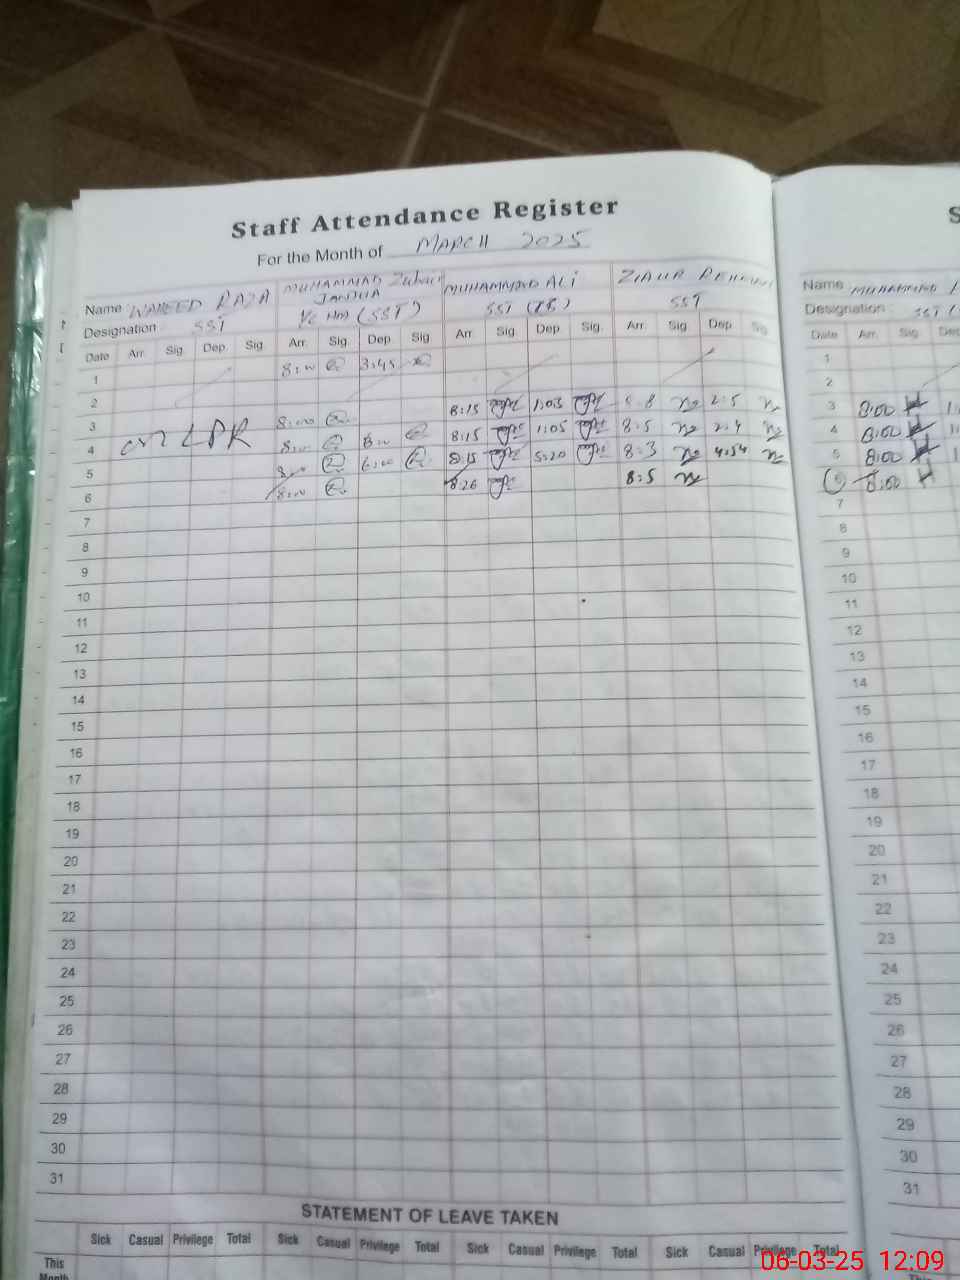 Staff Attendance Register
For the Month of MARCH 2025
Name WAHEED RAZA MUHAMMAD Zubair JANDUA MUHAMMAD ALI ZIAUR REHMAN
Designation SST I/c HM (SST) SST SST
Date Arr. Sig. Dep. Sig. Arr. Sig. Dep. Sig. Arr. Sig. Dep. Sig. Arr. Sig. Dep. Sig.
1 8:00 3:45
2
3 8:00 8:15 1:03 8 2:5
4 on LPR 8:00 8:15 1:05 8:5 2:4
5 8:15 5:20 8:3 4:54
6 8:00 8:26 8:5
7
8
9
10
11
12
13
14
15
16
17
18
19
20
21
22
23
24
25
26
27
28
29
30
31
STATEMENT OF LEAVE TAKEN
Sick Casual Privilege Total Sick Casual Privilege Total Sick Casual Privilege Total Sick Casual Privilege Total
This
Month
S
Name MUHAMMAD
Designation SST
Date Arr. Sig.
1
2
3 8:00
4 8:00
5 8:00
6 8:00
7
8
9
10
11
12
13
14
15
16
17
18
19
20
21
22
23
24
25
26
27
28
29
30
31
06-03-25 12:09